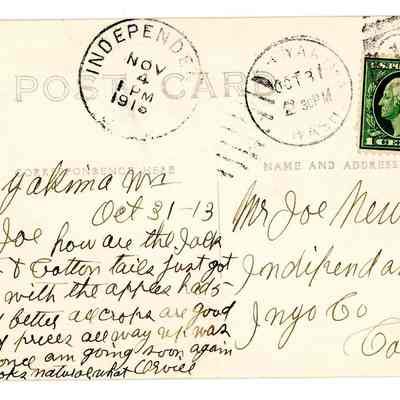 POST CARD
INDEPENDE
NOV
4
1 PM
1913
YAKIMA
OCT 31
2 30PM
WASH
U.S. POS
CORRESPONDENCE HERE
NAME AND ADDRESS
Yakima Wn
Oct 31-13
Joe how are the Jack
& Cotton tails just got
with the apples had 5
better all crops are good
prices all way up was
once am going soon again
looks natural what
Mr Joe New
Indipendan
Inyo Co
Ca